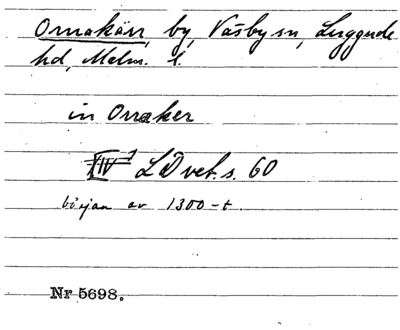 Ornakärr, by, Väsby sn, Luggude
hd, Malm. l.
in Orraker
LD vet. s. 60
början av 1300-t.
Nr 5698.